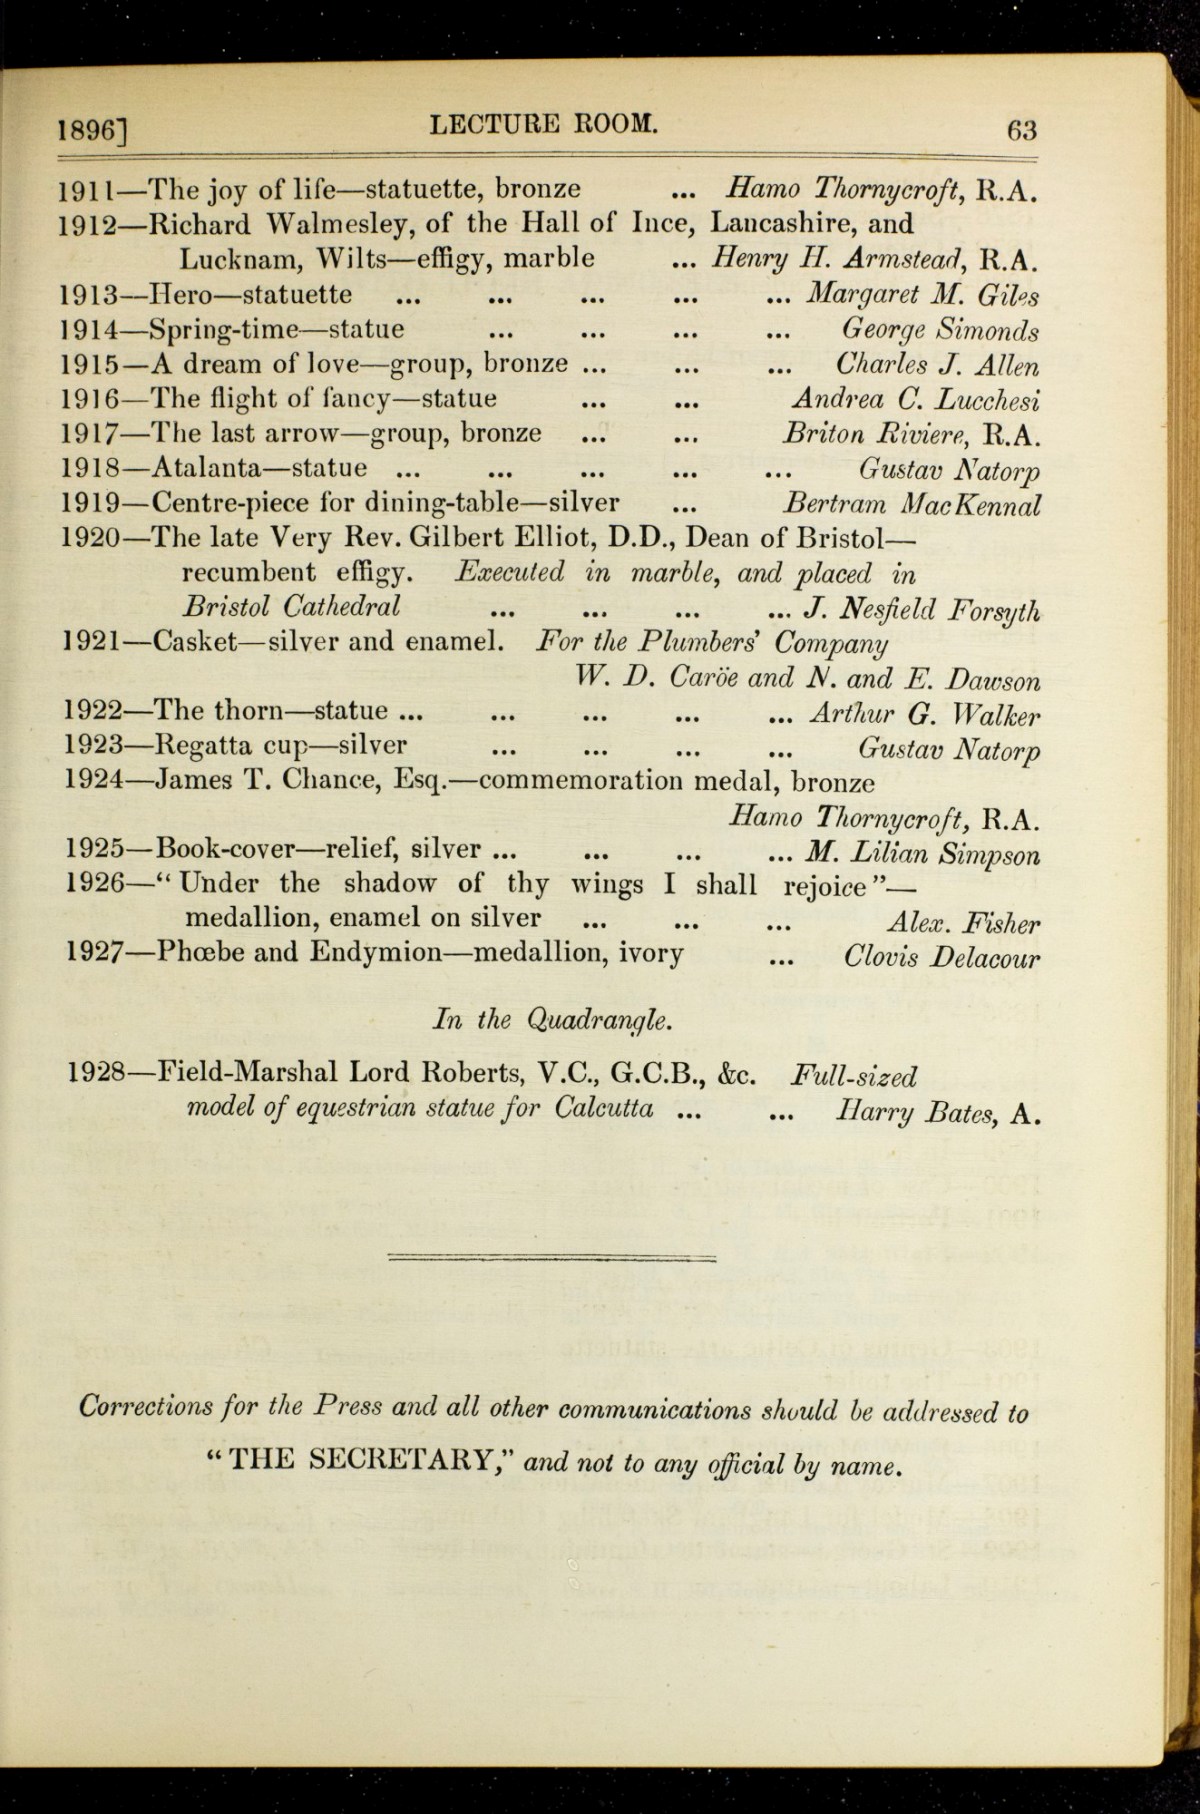 1896] LECTURE ROOM. 63
1911—The joy of life—statuette, bronze ... Hamo Thornycroft, R.A.
1912—Richard Walmesley, of the Hall of Ince, Lancashire, and
Lucknam, Wilts—effigy, marble ... Henry H. Armstead, R.A.
1913—Hero—statuette ... ... ... ... ... Margaret M. Giles
1914—Spring-time—statue ... ... ... ... George Simonds
1915—A dream of love—group, bronze ... ... ... Charles J. Allen
1916—The flight of fancy—statue ... ... Andrea C. Lucchesi
1917—The last arrow—group, bronze ... ... Briton Riviere, R.A.
1918—Atalanta—statue ... ... ... ... ... Gustav Natorp
1919—Centre-piece for dining-table—silver ... Bertram MacKennal
1920—The late Very Rev. Gilbert Elliot, D.D., Dean of Bristol—
recumbent effigy. Executed in marble, and placed in
Bristol Cathedral ... ... ... ... J. Nesfield Forsyth
1921—Casket—silver and enamel. For the Plumbers' Company
W. D. Caröe and N. and E. Dawson
1922—The thorn—statue ... ... ... ... ... Arthur G. Walker
1923—Regatta cup—silver ... ... ... ... Gustav Natorp
1924—James T. Chance, Esq.—commemoration medal, bronze
Hamo Thornycroft, R.A.
1925—Book-cover—relief, silver ... ... ... ... M. Lilian Simpson
1926—“Under the shadow of thy wings I shall rejoice”—
medallion, enamel on silver ... ... ... Alex. Fisher
1927—Phœbe and Endymion—medallion, ivory ... Clovis Delacour
In the Quadrangle.
1928—Field-Marshal Lord Roberts, V.C., G.C.B., &c. Full-sized
model of equestrian statue for Calcutta ... ... Harry Bates, A.
Corrections for the Press and all other communications should be addressed to
“THE SECRETARY,” and not to any official by name.